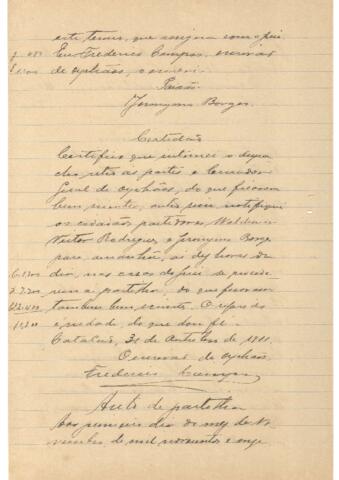 este termo, que assigna com o juiz.
Eu Frederico Campos, escrivão
de orphãos, o escrevi.
Jeronymo Borges.
Certidão
Certifico que intimei o despa-
cho, retro ás partes e Curador
Geral de orphãos, do que ficaram
bem scientes, outro sim notifiquei
os cidadãos partidores,
Nestor Rodrigues e Jeronymo Borges
para amanhã, as dez horas do
dia, nas casas do juiz se procede-
rem a partilha, do que ficaram
tambem bem scientes. O referido
é verdade, do que dou fé.
Catalão, 31 de Outubro de 1911.
O escrivão de orphãos
Frederico Campos
Auto de partilha
Aos primeiro dia do mez de No-
vembro de mil novecentos e onze